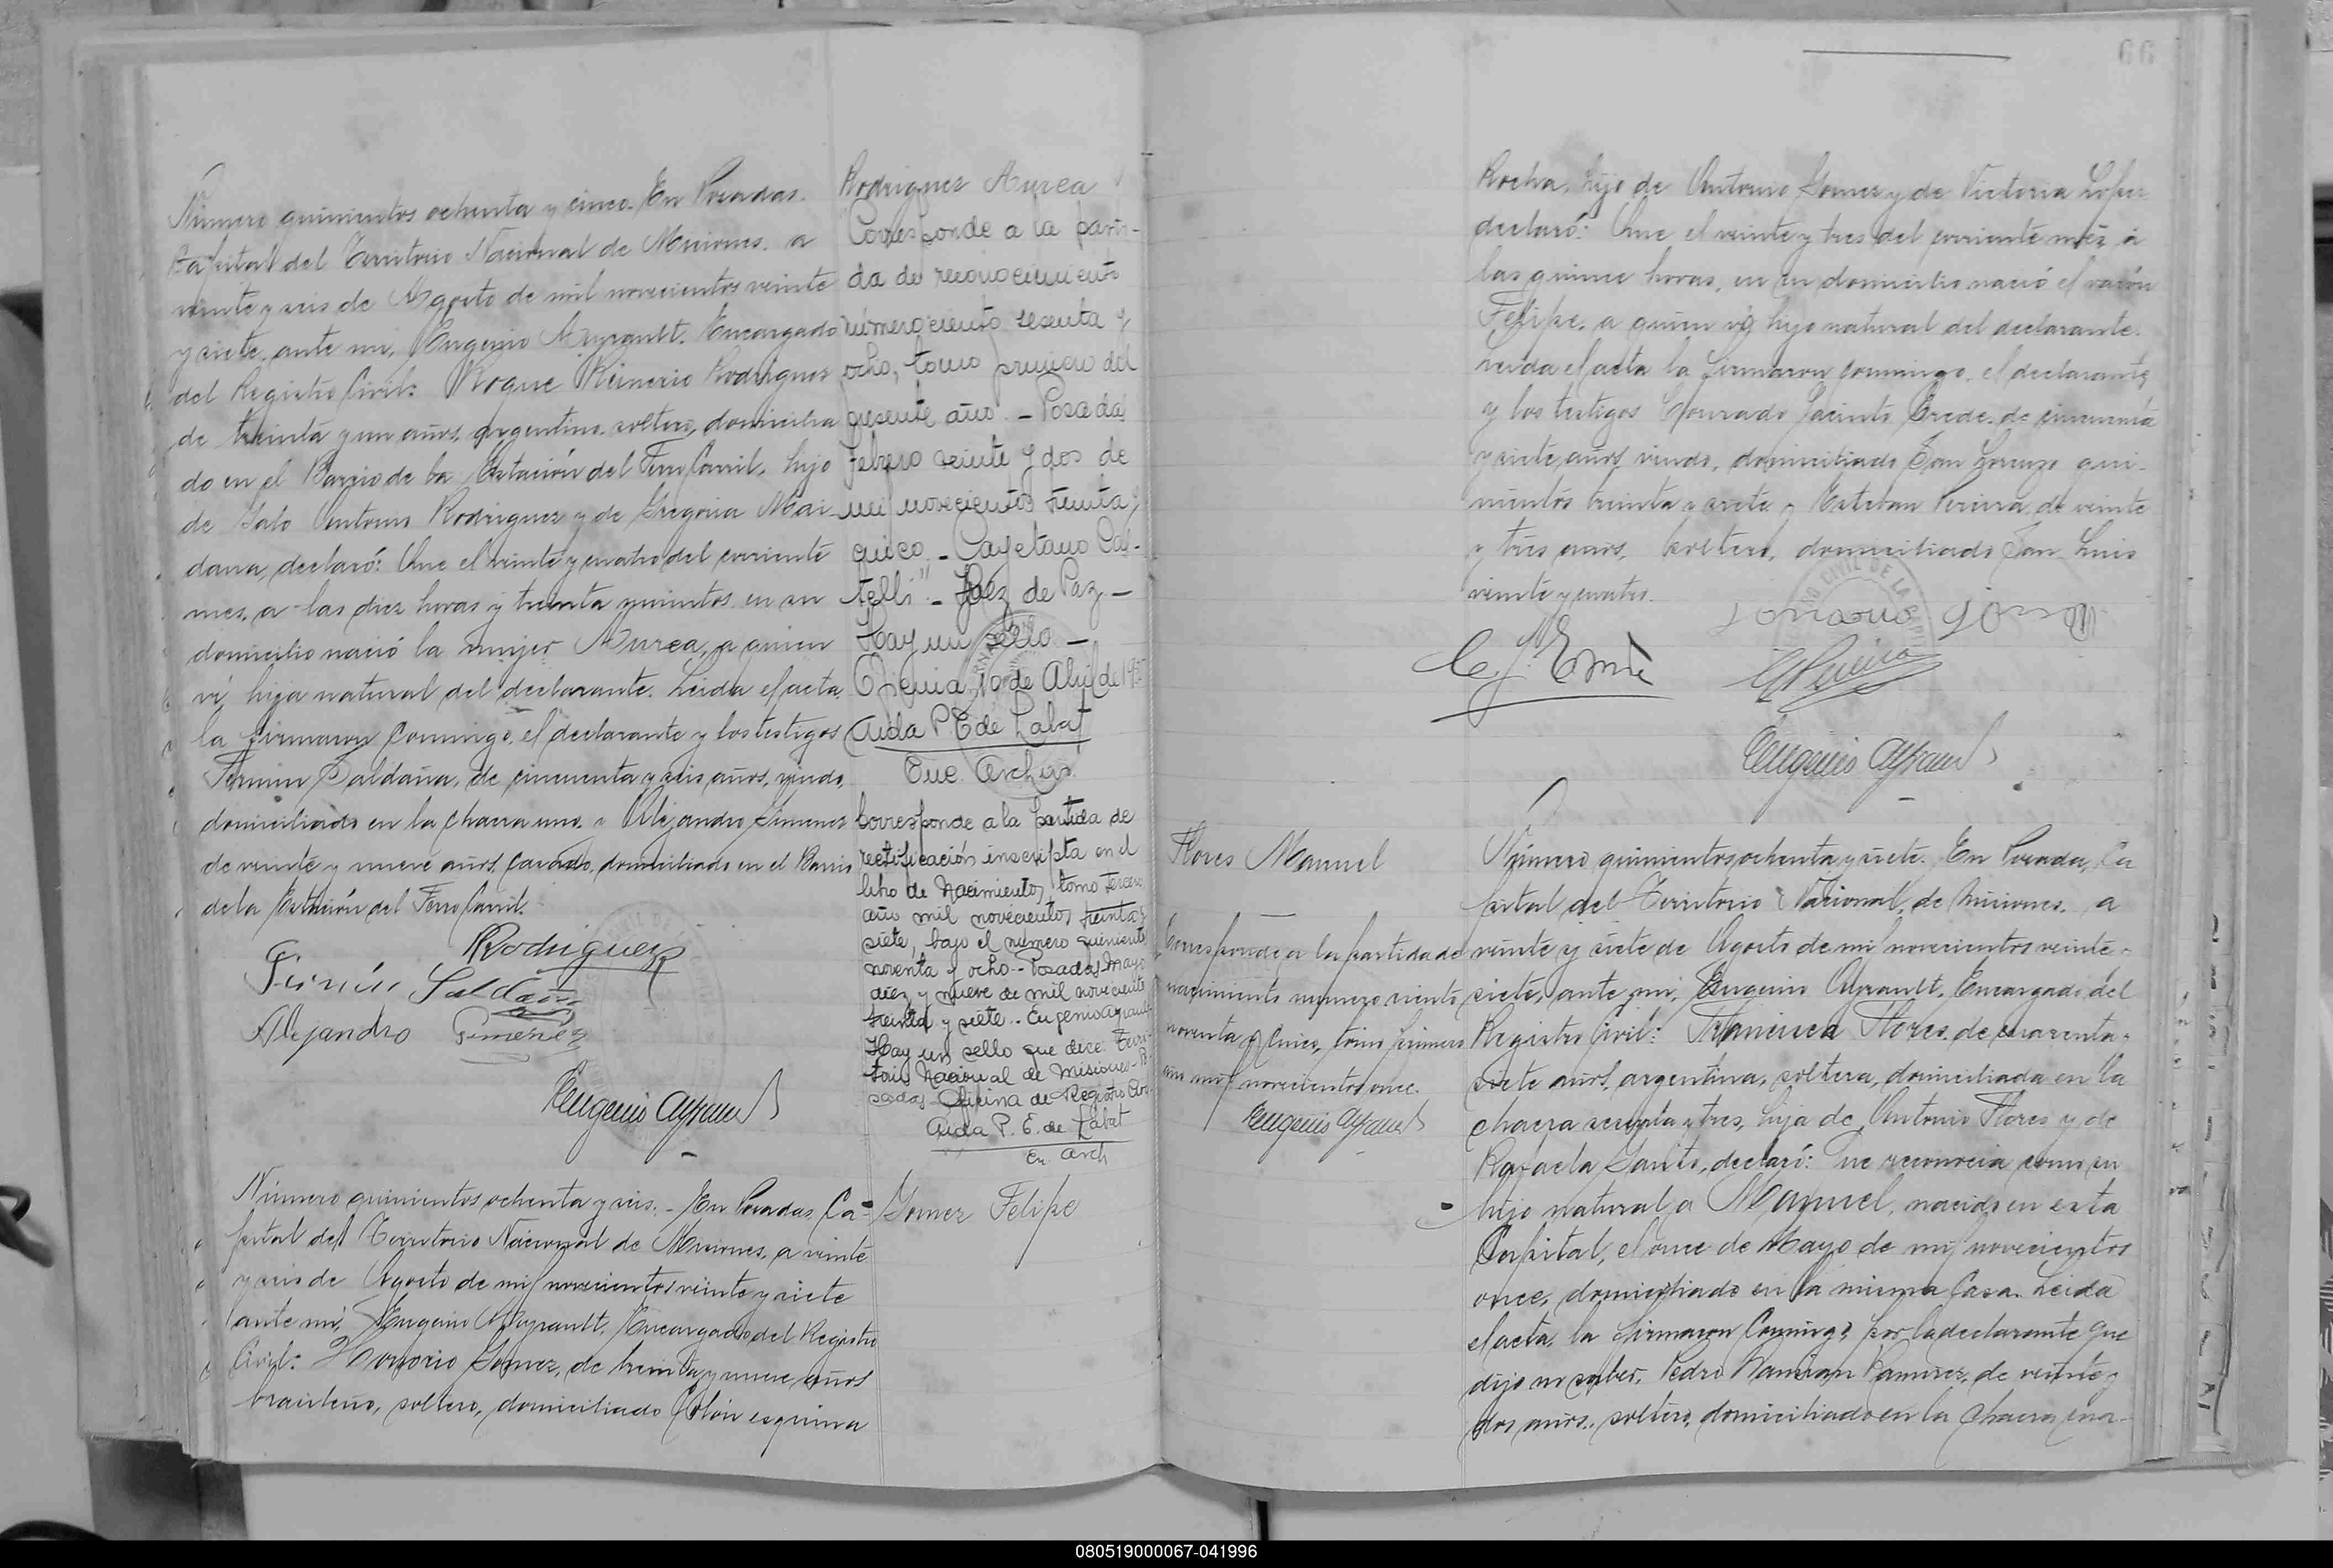 Número quinientos ochenta y cinco. En Posadas.
Capital del Territorio Nacional de Misiones, a
veinte y seis de Agosto de mil novecientos veinte
y siete, ante mi, Eugenio Ayrault, Encargado
del Registro Civil: Roque Reinerio Rodriguez
de treinta y un años, argentino, soltero, domicilia
do en el Barrio de la Estación del Ferro Carril, hijo
de Antonio Rodriguez y de Gregoria Mai
dana, declaró: Que el veinte y cuatro del corriente
mes, a las diez horas y treinta minutos en su
domicilio nació la mujer Aurea, a quien
ví, hija natural del declarante. Leida el acta
la firmaron conmigo, el declarante y los testigos
Fermin Saldaña, de cincuenta y seis años, viudo,
domiciliado en la chacra uno y Alejandro Gimenez
de veinte y nueve años, casado, domiciliado en el Barrio
de la Estación del Ferro Carril.
RRodriguez
Fermín Saldaña
Alejandro Gimenez
Eugenio Ayrault
Número quinientos ochenta y seis.- En Posadas, Ca-
pital del Territorio Nacional de Misiones, a veinte
y seis de Agosto de mil novecientos veinte y siete
ante mi, Eugenio Ayrault, Encargado del Registro
Civil: Honorio Gomez, de treinta y nueve años
brasileño, soltero, domiciliado Colón esquina
Rodriguez Aurea
Corresponde a la parti-
da de reconocimiento
número ciento sesenta y
ocho, tomo primero del
presente año.- Posadas
febrero veinte y dos de
mil novecientos treinta y
Cayetano Cas-
telli"- Juez de Paz -
Hay un sello -
Oficina, 10 de Abril de 19
Aida P. E de Labat
Enc. Archivo
Corresponde a la partida de
rectificación inscripta en el
libro de Nacimientos, tomo tercero
año mil novecientos treinta y
siete, bajo el número quinientos
noventa y ocho.- Posadas Mayo
diez y nueve de mil novecientos
treinta y siete.- Eugenio Ayrault
Hay un sello que dice: Terri-
torio Nacional de Misiones- Po-
sadas- Oficina de Registro Civil
Aida P. E. de Labat
En. Arch
Gomez Felipe
66
Rocha, hijo de Antonio Gomez y de Victoria Lopez
declaró: Que el veinte y tres del corriente mes, a
las quince horas, en su domicilio nació el varón
Felipe, a quien ví, hijo natural del declarante.
Leida el acta la firmaron conmigo, el declarante
y los testigos Conrado Jacinto, de cincuenta
y siete años, viudo, domiciliado San Lorenzo qui-
nientos treinta y siete y Esteban Pereira, de veinte
y tres años, soltero, domiciliado San Luis
veinte y cuatro.
Eugenio Ayrault
Flores Manuel
Corresponde a la partida de
nacimiento número ciento
noventa y cinco, tomo primero
año mil novecientos once.
Eugenio Ayrault
Número quinientos ochenta y siete. En Posadas, Ca
pital del Territorio Nacional de Misiones, a
veinte y siete de Agosto de mil novecientos veinte y
siete, ante mi, Eugenio Ayrault, Encargado del
Registro Civil: Francisca Flores, de cuarenta y
siete años, argentina, soltera, domiciliada en la
chacra sesenta y tres, hija de Antonio Flores y de
Rafaela Santo, declaró: Que reconocia como su
hijo natural a Manuel, nacido en esta
Capital, el once de Mayo de mil novecientos
once, domiciliado en la misma casa. Leida
el acta, la firmaron conmigo, por la declarante que
dijo no saber, Pedro Damian Ramirez, de veinte y
dos años, soltero, domiciliado en la chacra cua-
080519000067-041996